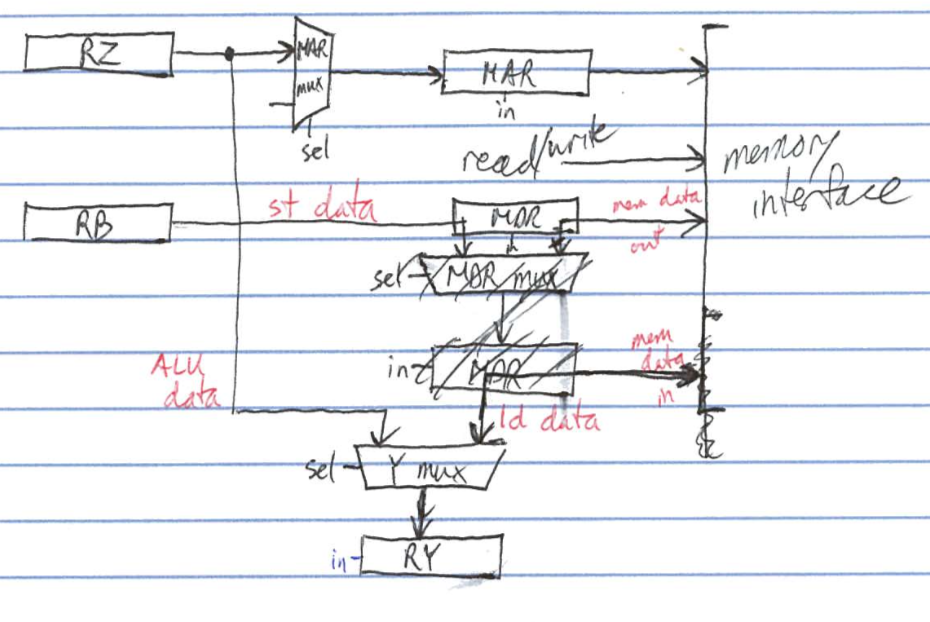 RZ
MAR
mux
sel
MAR
in
read/write
memory
interface
RB
st data
MDR
in
mem data
out
sel
MDR mux
in
MAR
mem
data
in
ALU
data
ld data
sel
Y mux
in
RY